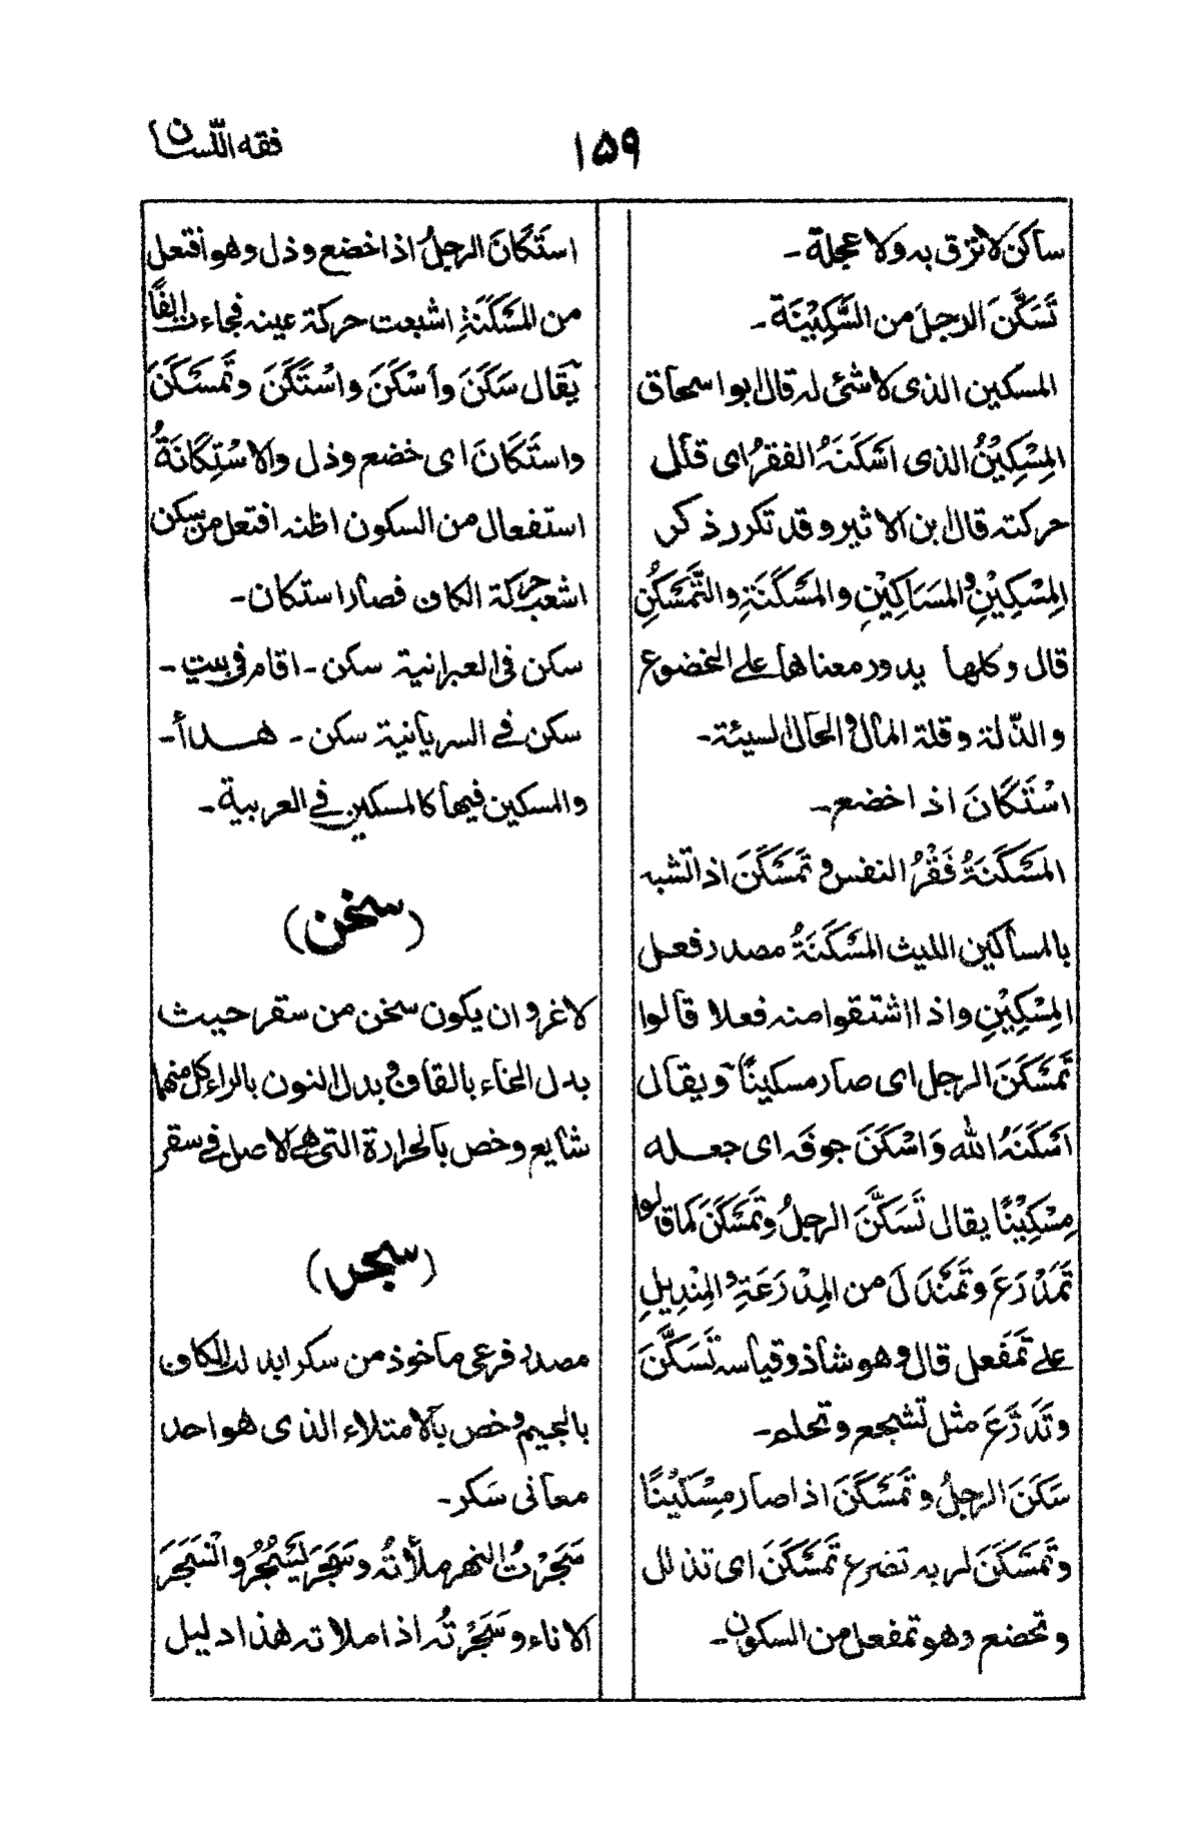 فقه اللسان
۱۵۹
ساكن لا نزق به ولا عجلة -
تَسَكَّنَ الرجلَ من السَّكِيْنَة -
المسكين الذى لا شئى له قال ابو اسحاق
المِسْكِيْنُ الذى اَسْكَنَهُ الفقرُ اى قلل
حركته قال ابن الاثير وقد تكرر ذكر
المِسْكِيْنِ والمَسَاكِيْنِ والمَسْكَنَةِ والتَّمَسْكُنِ
قال وكلها يدور معناها على الخضوع
والذّلة وقلة المال والحال السيئة -
اسْتَكَانَ اذا خضع -
المَسْكَنَةُ فَقْرُ النفس وتَمَسْكَنَ اذا تشبه
بالمساكين الليث المَسْكَنَةُ مصدر فعل
المِسْكِيْنِ واذا اشتقوا منه فعلا قالوا
تَمَسْكَنَ الرجل اى صار مسكينًا ويقال
اَسْكَنَهُ الله وَاَسْكَنَ جوفه اى جعله
مِسْكِيْنًا يقال تَسَكَّنَ الرجلُ وتَمَسْكَنَ كما قالوا
تَمَدْرَعَ وتَمَنْدَلَ من المِدْرَعَةِ والمِنْدِيلِ
على تَمَفْعل قال وهو شاذ وقياسه تَسَكَّنَ
وتَدَرَّعَ مثل تشجع وتحلم -
سَكَنَ الرجلُ وتَمَسْكَنَ اذا صار مِسْكِيْنًا
وتَمَسْكَنَ لربه تضرع تَمَسْكَنَ اى تذلل
وتخضع وهو تمفعل من السكون -
استَكَانَ الرجلُ اذا خضع وذل وهو افتعل
من المَسْكَنَةِ اشبعت حركة عينه فجاءت الفًا
يقال سَكَنَ وأسْكَنَ واسْتَكَنَ وتَمَسْكَنَ
واستَكَانَ اى خضع وذل والاسْتِكَانَةُ
استفعال من السكون اظنه افتعل من سكن
اشعب حركة الكاف فصار استكان -
سكن فى العبرانية سكن - اقام فى بيت -
سكن فى السريانية سكن - هدأ -
والمسكين فيها كالمسكين فى العربية -
(سخن)
لا غرو ان يكون سخن من سقر حيث
بدل الخاء بالقاف وبدل النون بالراء كل منهما
شايع وخص بالحرارة التى هى لاصل فى سقر
(سجر)
مصدر فرعى ماخوذ من سكر ابدلت الكاف
بالجيم وخص بالامتلاء الذى هو احد
معانى سَكر -
سَجَرْتُ النهر ملأته وسَجَرَ يَسْجُرُ وانْسَجَرَ
الاناء وسَجَرْتُه اذا ملاته هذا دليل